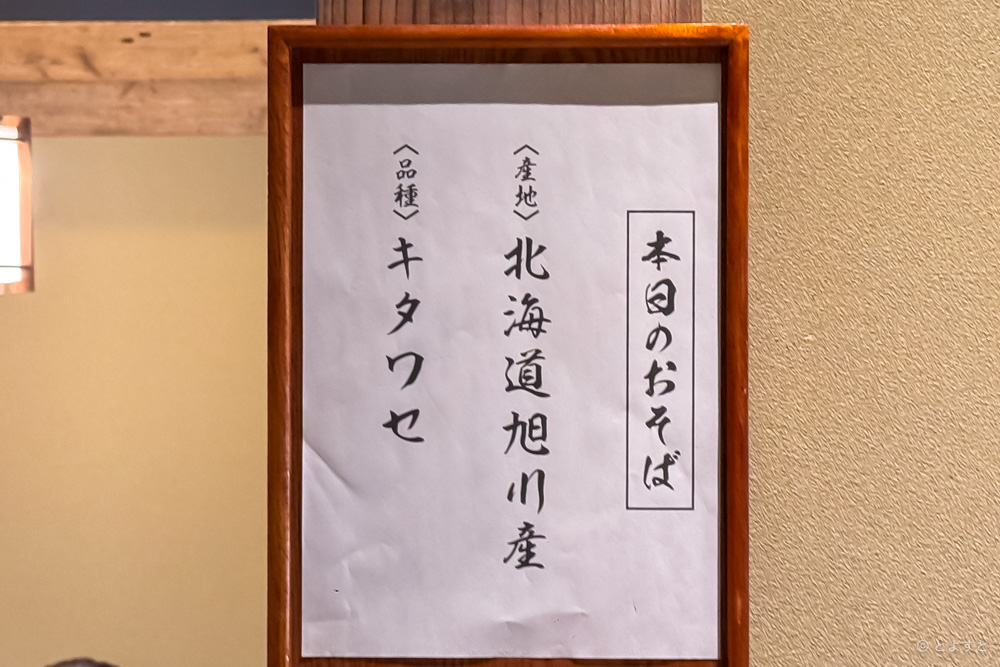 本日のおそば
〈産地〉北海道旭川産
〈品種〉キタワセ
© とよすと